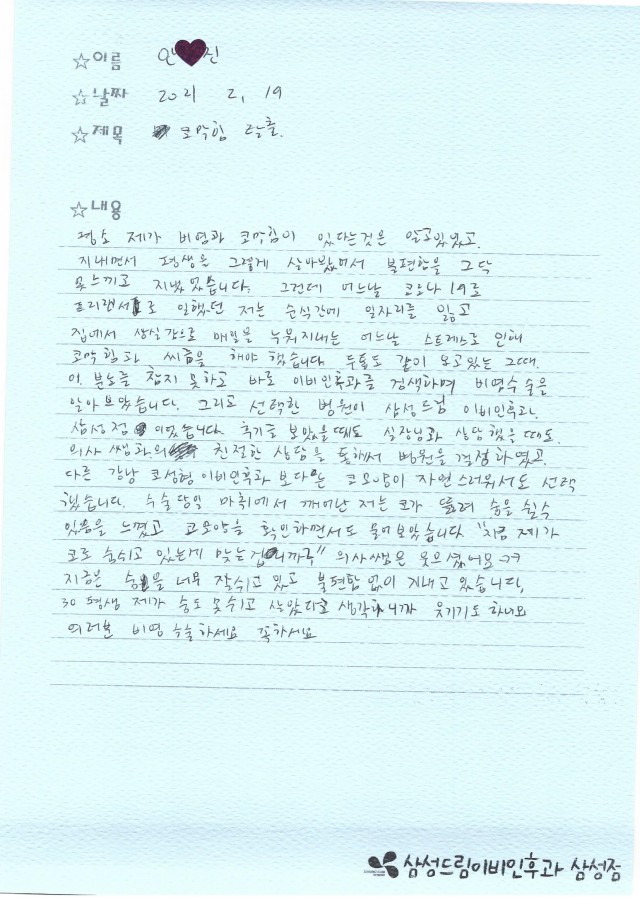 ☆이름 안♥진
☆날짜 2021 2, 19
☆제목 코막힘 탈출.
☆내용
평소 제가 비염과 코막힘이 있다는것은 알고있었고.
지내면서 평생을 그렇게 살아왔어서 불편함을 그닥
못느끼고 지냈었습니다. 그런데 어느날 코로나 19로
프리랜서로 일했던 저는 순식간에 일자리를 잃고
집에서 상실감으로 매일을 누워지내는 어느날 스트레스로 인해
코막힘과 씨름을 해야 했습니다 두통도 같이 오고있는 그때.
이 분노를 참지 못하고 바로 이비인후과를 검색하며 비염수술을
알아보았습니다. 그리고 선택한 병원이 삼성드림 이비인후과.
삼성점 이었습니다 후기를 보았을때도 실장님과 상담했을때도.
의사 쌤과의 친절한 상담을 통해서 병원을 결정하였고.
다른 강남 코성형이비인후과 보다는 코모양이 자연스러워서도 선택
했습니다. 수술당일 마취에서 깨어난 저는 코가 뚫려 숨을 쉴수
있음을 느꼈고 코모양을 확인하면서도 물어보았습니다 "지금 제가
코로 숨쉬고 있는게 맞는겁니까?" 의사쌤은 웃으셨어요 ㅋㅋ
지금은 숨을 너무 잘쉬고 있고 불편함 없이 지내고 있습니다.
30 평생 제가 숨도 못쉬고 살았다고 생각하니까 웃기기도 하네요
여러분 비염 수술하세요 꼭하세요
삼성드림이비인후과 삼성점